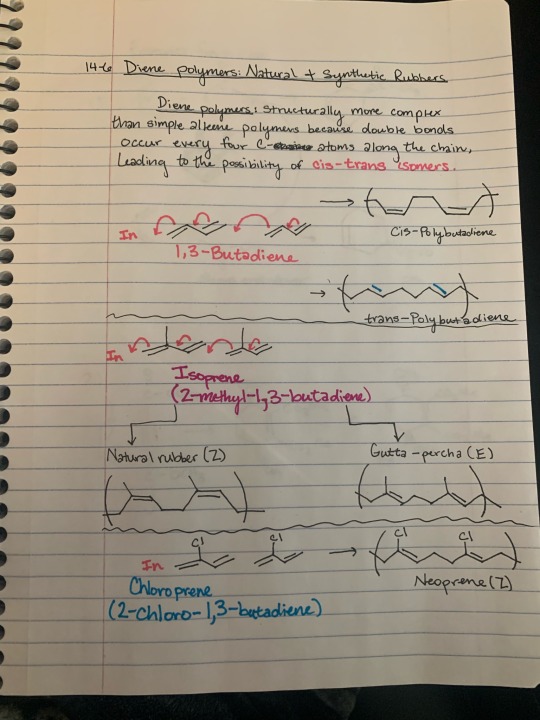 14-6 Diene polymers: Natural + Synthetic Rubbers
Diene polymers: structurally more complex
than simple alkene polymers because double bonds
occur every four C- atoms along the chain,
Leading to the possibility of cis-trans isomers.
In
1,3-Butadiene
Cis-Polybutadiene
trans-Polybutadiene
In
Isoprene
(2-methyl-1,3-butadiene)
Natural rubber (Z)
Gutta-percha (E)
Cl Cl Cl Cl
In
Chloroprene
(2-Chloro-1,3-butadiene)
Neoprene (Z)